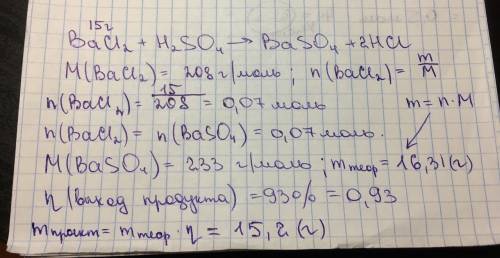 15г
BaCl₂ + H₂SO₄ → BaSO₄ + 2HCl
M(BaCl₂) = 208 г/моль; n(BaCl₂) = m/M
n(BaCl₂) = 15/208 = 0,07 моль
m = n·M
n(BaCl₂) = n(BaSO₄) = 0,07 моль.
M(BaSO₄) = 233 г/моль; mтеор = 16,31 (г)
η (выход продукта) = 93% = 0,93
mпракт = mтеор · η = 15,2 (г)